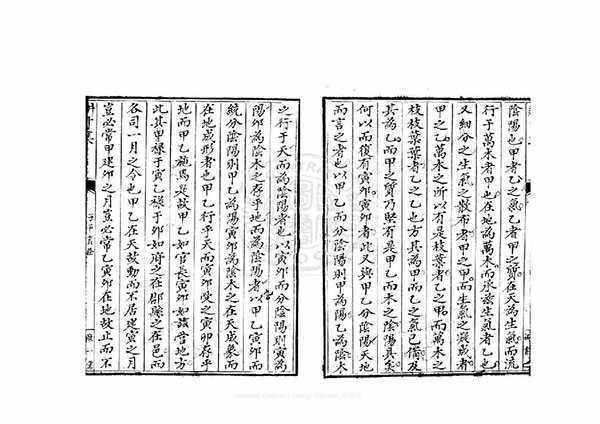 陰陽也甲者乙之氣乙者甲之質在天為生氣而流
行于萬木者甲也在地為萬木而承茲生氣者乙也
又細分之生氣之散布者甲之甲而生氣之凝成者
甲之乙萬木之所以有是枝葉者乙之甲而萬木之
枝枝葉葉者乙之乙也方其為甲而乙之氣已備及
其為乙而甲之質乃堅有是甲乙而木之陰陽具矣
何以而復有寅卯寅卯者此又與甲乙分陰陽天地
而言之者也以甲乙而分陰陽則甲為陽乙為陰木
之行于天而為陰陽者也以寅卯而分陰陽則寅為
陽卯為陰木之存乎地而為陰陽者以甲乙寅卯而
統分陰陽則甲乙為陽寅卯為陰木之在天成象而
在地成形者也甲乙行乎天而寅卯受之寅卯存乎
地而甲乙施焉是故甲乙如官長寅卯如該管地方
此其甲祿于寅乙祿于卯如府之在郡縣之在邑而
各司一月之令也甲乙在天故動而不居建寅之月
豈必常甲建卯之月豈必常乙寅卯在地故止而不